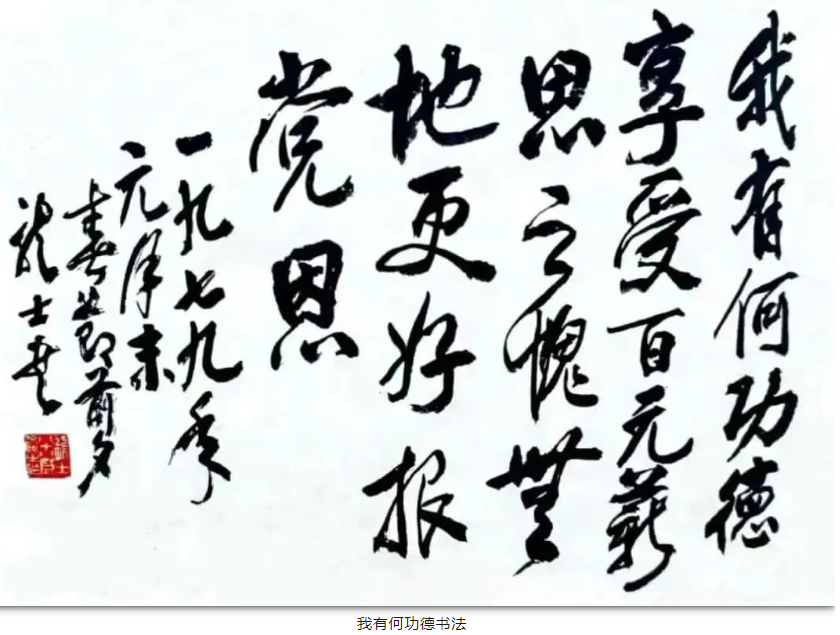 我有何功德
享受百元薪
思之愧無
地更好报
党恩
一九七九年
元月末
春节前夕
龙士
我有何功德书法